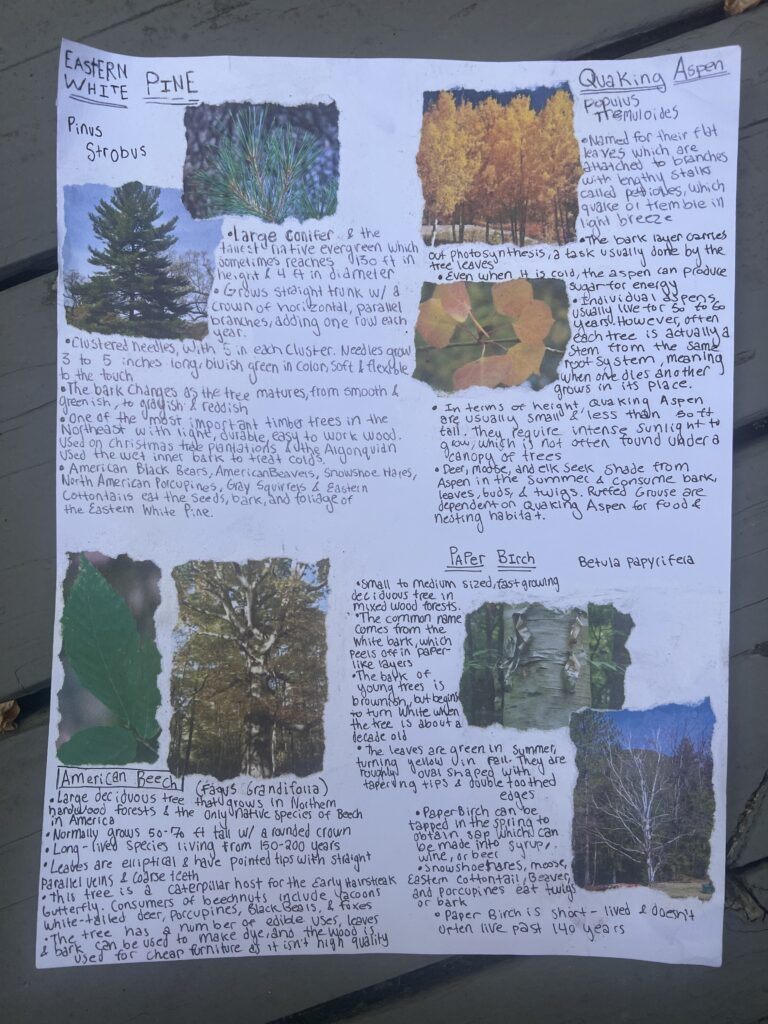 EASTERN
WHITE PINE
Pinus
Strobus
•Large conifer & the
tallest native evergreen which
sometimes reaches 150 ft in
height & 4 ft in diameter
•Grows straight trunk w/ a
crown of horizontal, parallel
branches, adding one row each
year.
•Clustered needles, with 5 in each cluster. Needles grow
3 to 5 inches long, bluish green in color, soft & flexible
to the touch
•The bark changes as the tree matures, from smooth &
greenish, to grayish & reddish
•One of the most important timber trees in the
Northeast with light, durable, easy to work wood.
Used on christmas tree plantations & the Algonquian
used the wet inner bark to treat colds.
•American Black Bears, American Beavers, Snowshoe Hares,
North American Porcupines, Gray Squirrels & Eastern
Cottontails eat the seeds, bark, and foliage of
the Eastern White Pine.
QUAKING ASPEN
Populus
Tremuloides
•Named for their flat
leaves which are
attatched to branches
with lengthy stalks
called petioles, which
quake or tremble in
light breeze
•The bark layer carries
out photosynthesis, a task usually done by the
tree leaves
•Even when it is cold, the aspen can produce
sugar for energy
•Individual aspens
usually live for 50 to 60
years. However, often
each tree is actually a
stem from the same
root system, meaning
when one dies another
grows in its place.
•In terms of height, Quaking Aspen
are usually small & less than 50 ft
tall. They require intense sunlight to
grow, which is not often found under a
canopy of trees
•Deer, moose, and elk seek shade from
Aspen in the summer & consume bark,
leaves, buds, & twigs. Ruffed Grouse are
dependent on Quaking Aspen for food &
nesting habitat.
American Beech (Fagus Grandifolia)
•Large deciduous tree that grows in Northern
hardwood forests & the only native species of Beech
in America
•Normally grows 50-70 ft tall w/ a rounded crown
•Long-lived species living from 150-200 years
•Leaves are elliptical & have pointed tips with straight
parallel veins & coarse teeth
•This tree is a caterpillar host for the Early Hairstreak
butterfly. Consumers of beechnuts include racoons
white-tailed deer, porcupines, Black Bears, & foxes
•The tree has a number of edible uses, leaves
& bark can be used to make dye, and the wood is
used for cheap furniture as it isn't high quality
PAPER BIRCH Betula papyrifera
•Small to medium sized, fast growing
deciduous tree in
mixed wood forests.
•The common name
comes from the
white bark, which
peels off in paper-
like layers
•The bark of
young trees is
brownish, but begins
to turn white when
the tree is about a
decade old
•The leaves are green in summer,
turning yellow in fall. They are
roughly oval shaped with
tapering tips & double toothed
edges
•Paper Birch can be
tapped in the spring to
obtain sap which can
be made into syrup,
wine, or beer
•Snowshoe hares, moose,
Eastern Cottontail, Beaver,
and porcupines eat twigs
or bark
•Paper Birch is short-lived & doesn't
often live past 140 years